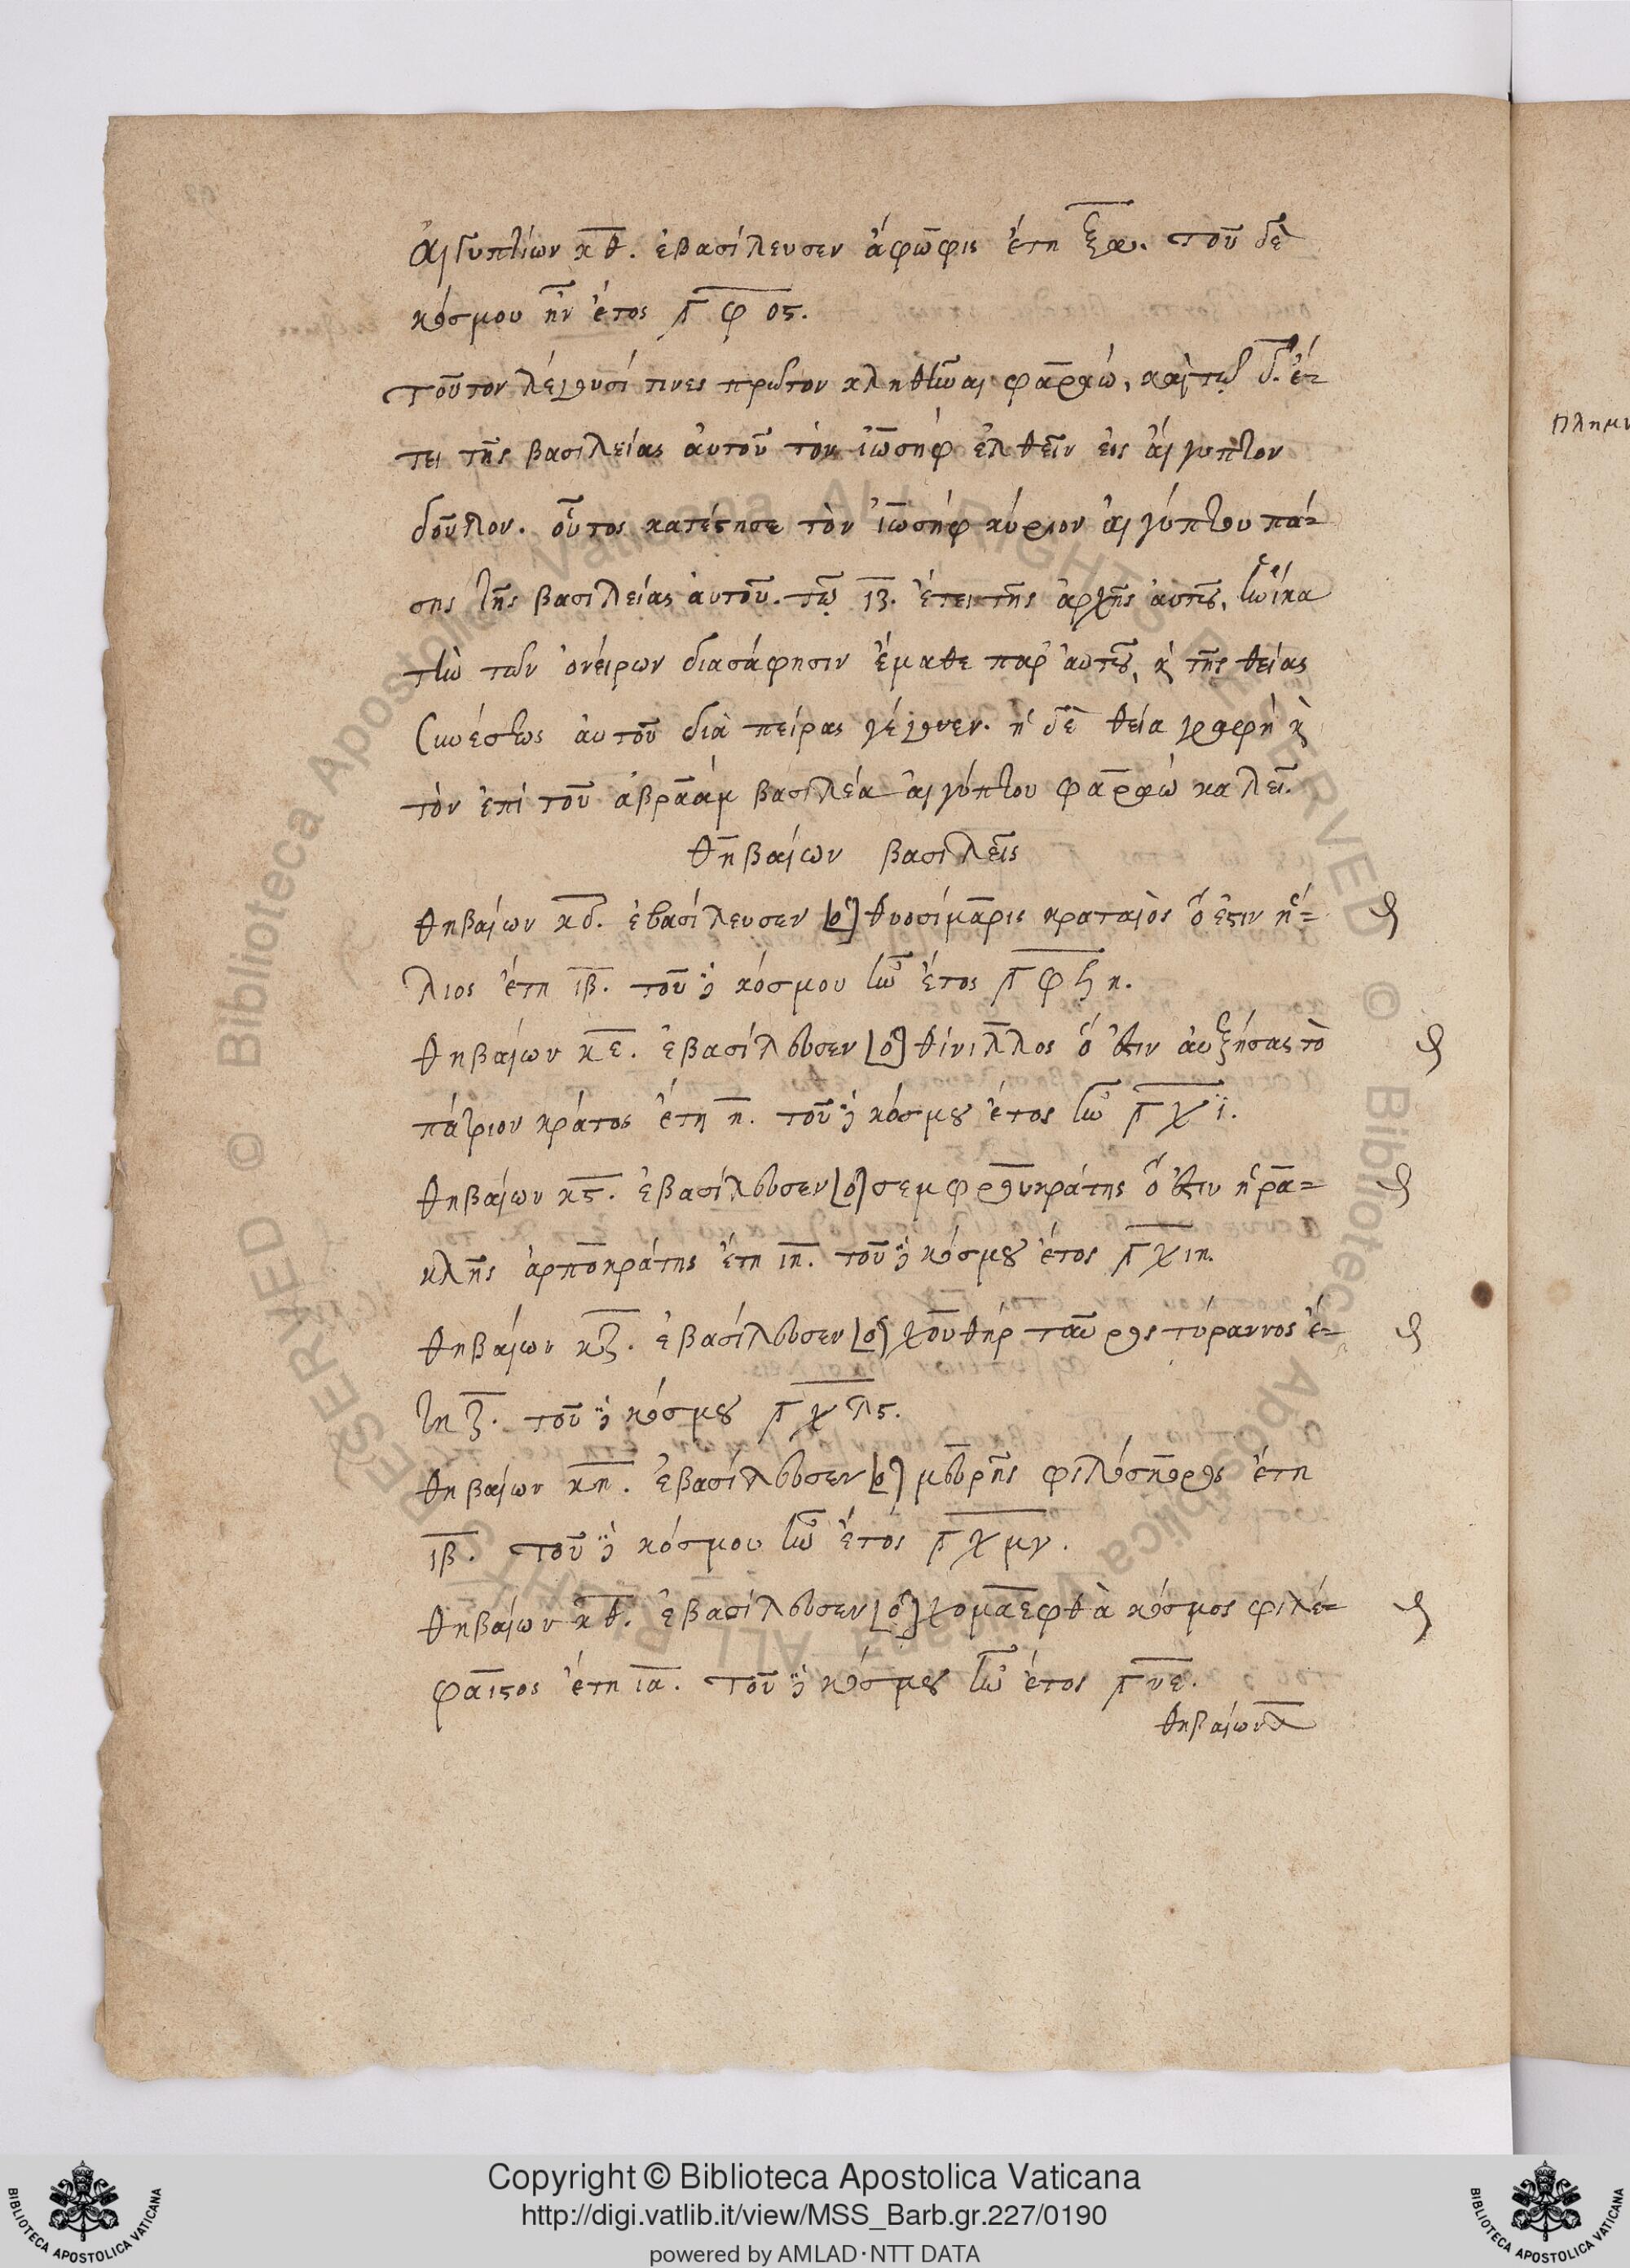 Αἰγυπτίων κθ. ἐβασίλευσεν ἄφωφις ἔτη ξα. τοῦ δὲ
κόσμου ἦν ἔτος ͵γφος.
τοῦτον λέγουσί τινες πρῶτον κληθῆναι φαραώ, καὶ τῷ δ. ἔ-
τει τῆς βασιλείας ἀυτοῦ τὸν ἰωσὴφ ἐλθεῖν εἰς ἄιγυπτον
δοῦλον. οὗτος κατέστησε τὸν ἰωσὴφ κύριον ἀιγύπτου πά-
σης τῆς βασιλείας ἀυτοῦ. τῷ ιζ. ἔτει τῆς ἀρχῆς ἀυτοῦ, ἡνίκα
τὴν τῶν ὀνείρων διασάφησιν ἔμαθε παρ' ἀυτοῦ, κ τῆς θείας
συνέσεως ἀυτοῦ διὰ πείρας γέγονεν. ἡ δὲ θεία γραφὴ κ
τὸν ἐπὶ τοῦ ἀβραὰμ βασιλέα ἀιγύπτου φαραὼ καλεῖ.
θηβαίων βασιλεῖς
θηβαίων κδ. ἐβασίλευσεν [ὁ] θυοσίμαρις κραταιὸς ὅ ἐστιν ἥ-
λιος ἔτη ιβ. τοῦ δὲ κόσμου ἦν ἔτος ͵γφϟη.
θηβαίων κε. ἐβασίλευσεν [ὁ] θίνιλλος ὅ ἐστιν ἀυξήσας τὸ
πάτριον κράτος ἔτη η. τοῦ δὲ κόσμου ἔτος ἦν ͵γχϊ.
θηβαίων κς. ἐβασίλευσεν [ὁ] σεμφρουκράτης ὅ ἐστιν ἡρα-
κλῆς ἁρποκράτης ἔτη ιη. τοῦ δὲ κόσμου ἔτος ͵γχιη.
θηβαίων κζ. ἐβασίλευσεν [ὁ] χουθὴρ ταῦρος τύραννος ἔ-
τη ζ. τοῦ δὲ κόσμου ͵γχλς.
θηβαίων κη. ἐβασίλευσεν [ὁ] μευρῆς φιλόσκορος ἔτη
ιβ. τοῦ δὲ κόσμου ἦν ἔτος ͵γχμγ.
θηβαίων κθ. ἐβασίλευσεν [ὁ] χομαεφθὰ κόσμος φιλέ-
φαιστος ἔτη ια. τοῦ δὲ κόσμου ἦν ἔτος ͵γνε.
θηβαίων λ
Copyright © Biblioteca Apostolica Vaticana
http://digi.vatlib.it/view/MSS_Barb.gr.227/0190
powered by AMLAD·NTT DATA